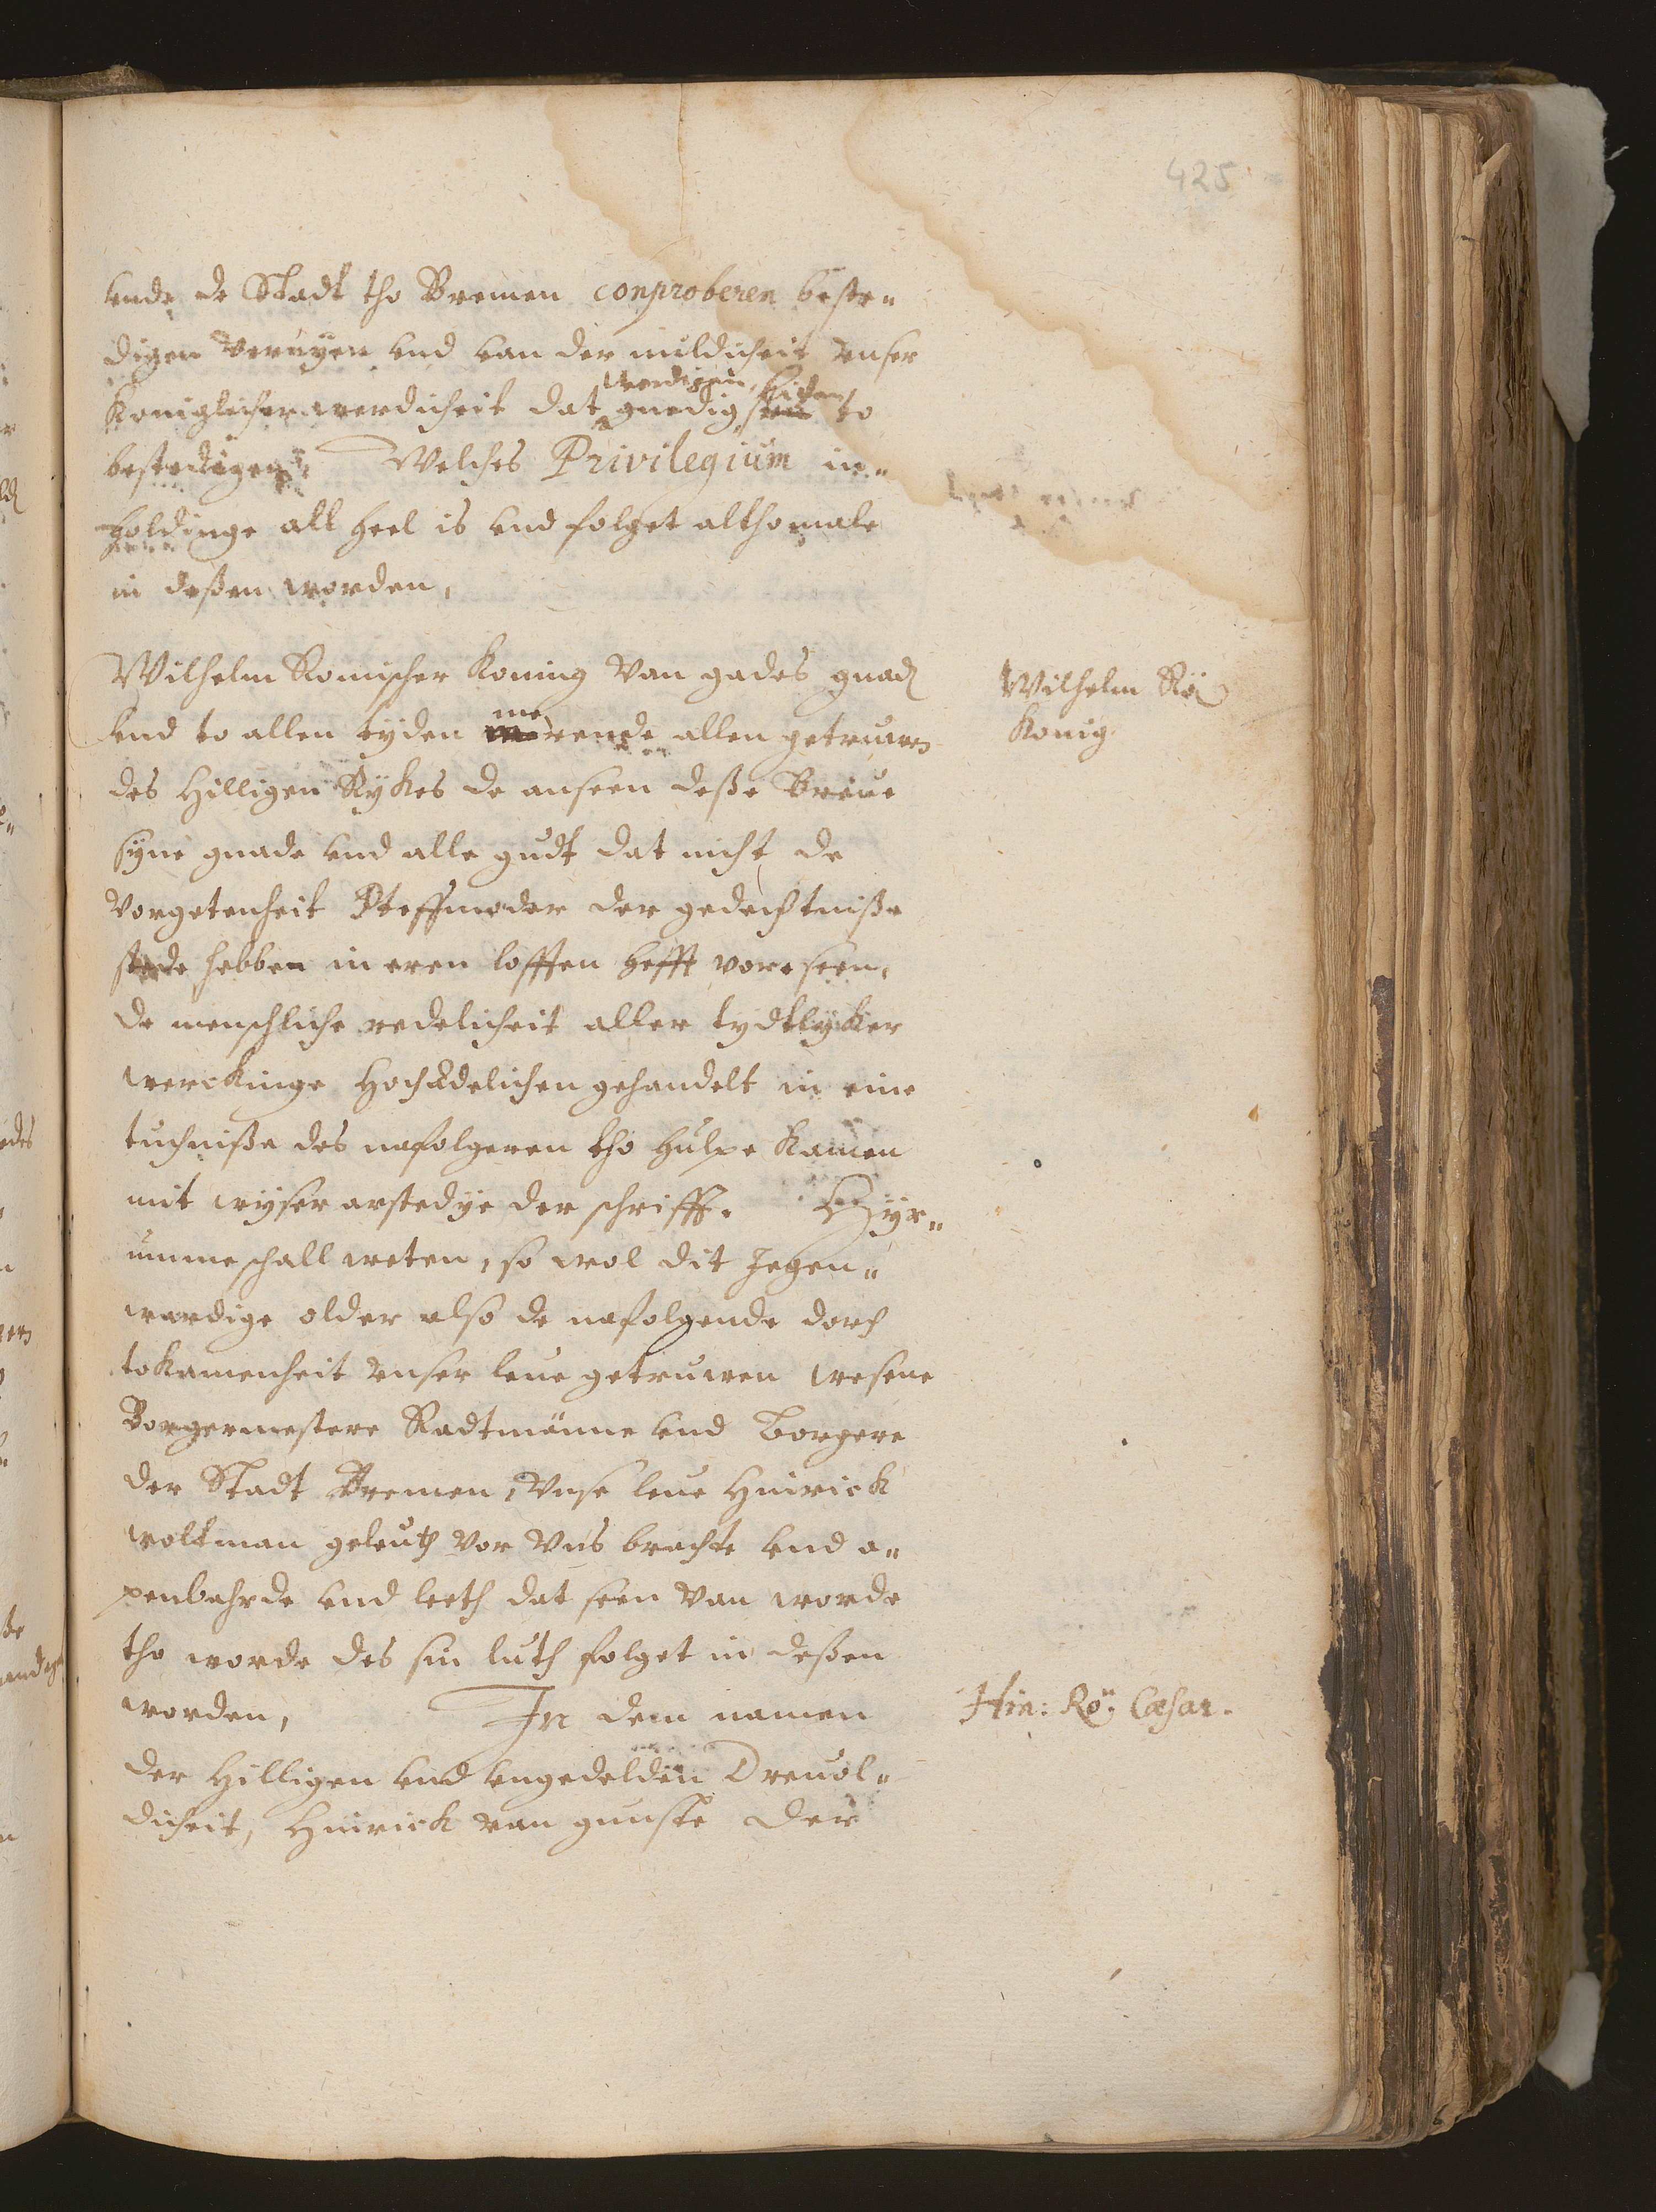 425
vnde de Stadt tho Bremen conproberen beste„
digen Vernyen vnd van der mildicheit vnser
Koniglicher werdicheit dat werdigen gnedig lichen to
bestedigen, Welches Privilegium in„
holdinge all heel is vnd folget althomale
in deßen worden,
Wilhelm Romischer Koning Van gades gnad
Vnd to allen tyden merende allen getruwen
des Hilligen Rykes de anseen deße Breue
syne gnade vnd alle gudt dat nicht de
Vorgetenheit Steffmoder der gedechtniße
stede hebben in eren lofften hefft vorseen,
de menschliche redelicheit aller tydtlyker
werckinge Hochadelichen gehandelt in eine
tuchniße des nafolgeren tho hulpe kamen
mit wyser arstedye der schrifft. Hyr„
umme schall weten, so wol dit Jegen„
wardige older also de nafolgende dorch
tokamenheit vnser leue getruwen wesene
Borgermestere Radtmänne vnd Borgere
der Stadt Bremen, Vnse leue Hinrick
woltman geleuth vor Vns brachte vnd o„
penbahrde vnd leeth dat seen Van worde
tho worde des sin luth folget in deßen
worden, In dem namen
der Hilligen vnd vngedelden Dreuol„
dicheit, Hinrick van gunste der
Wilhelm Rö
Konig.
Hin: Rö: Cæsar.